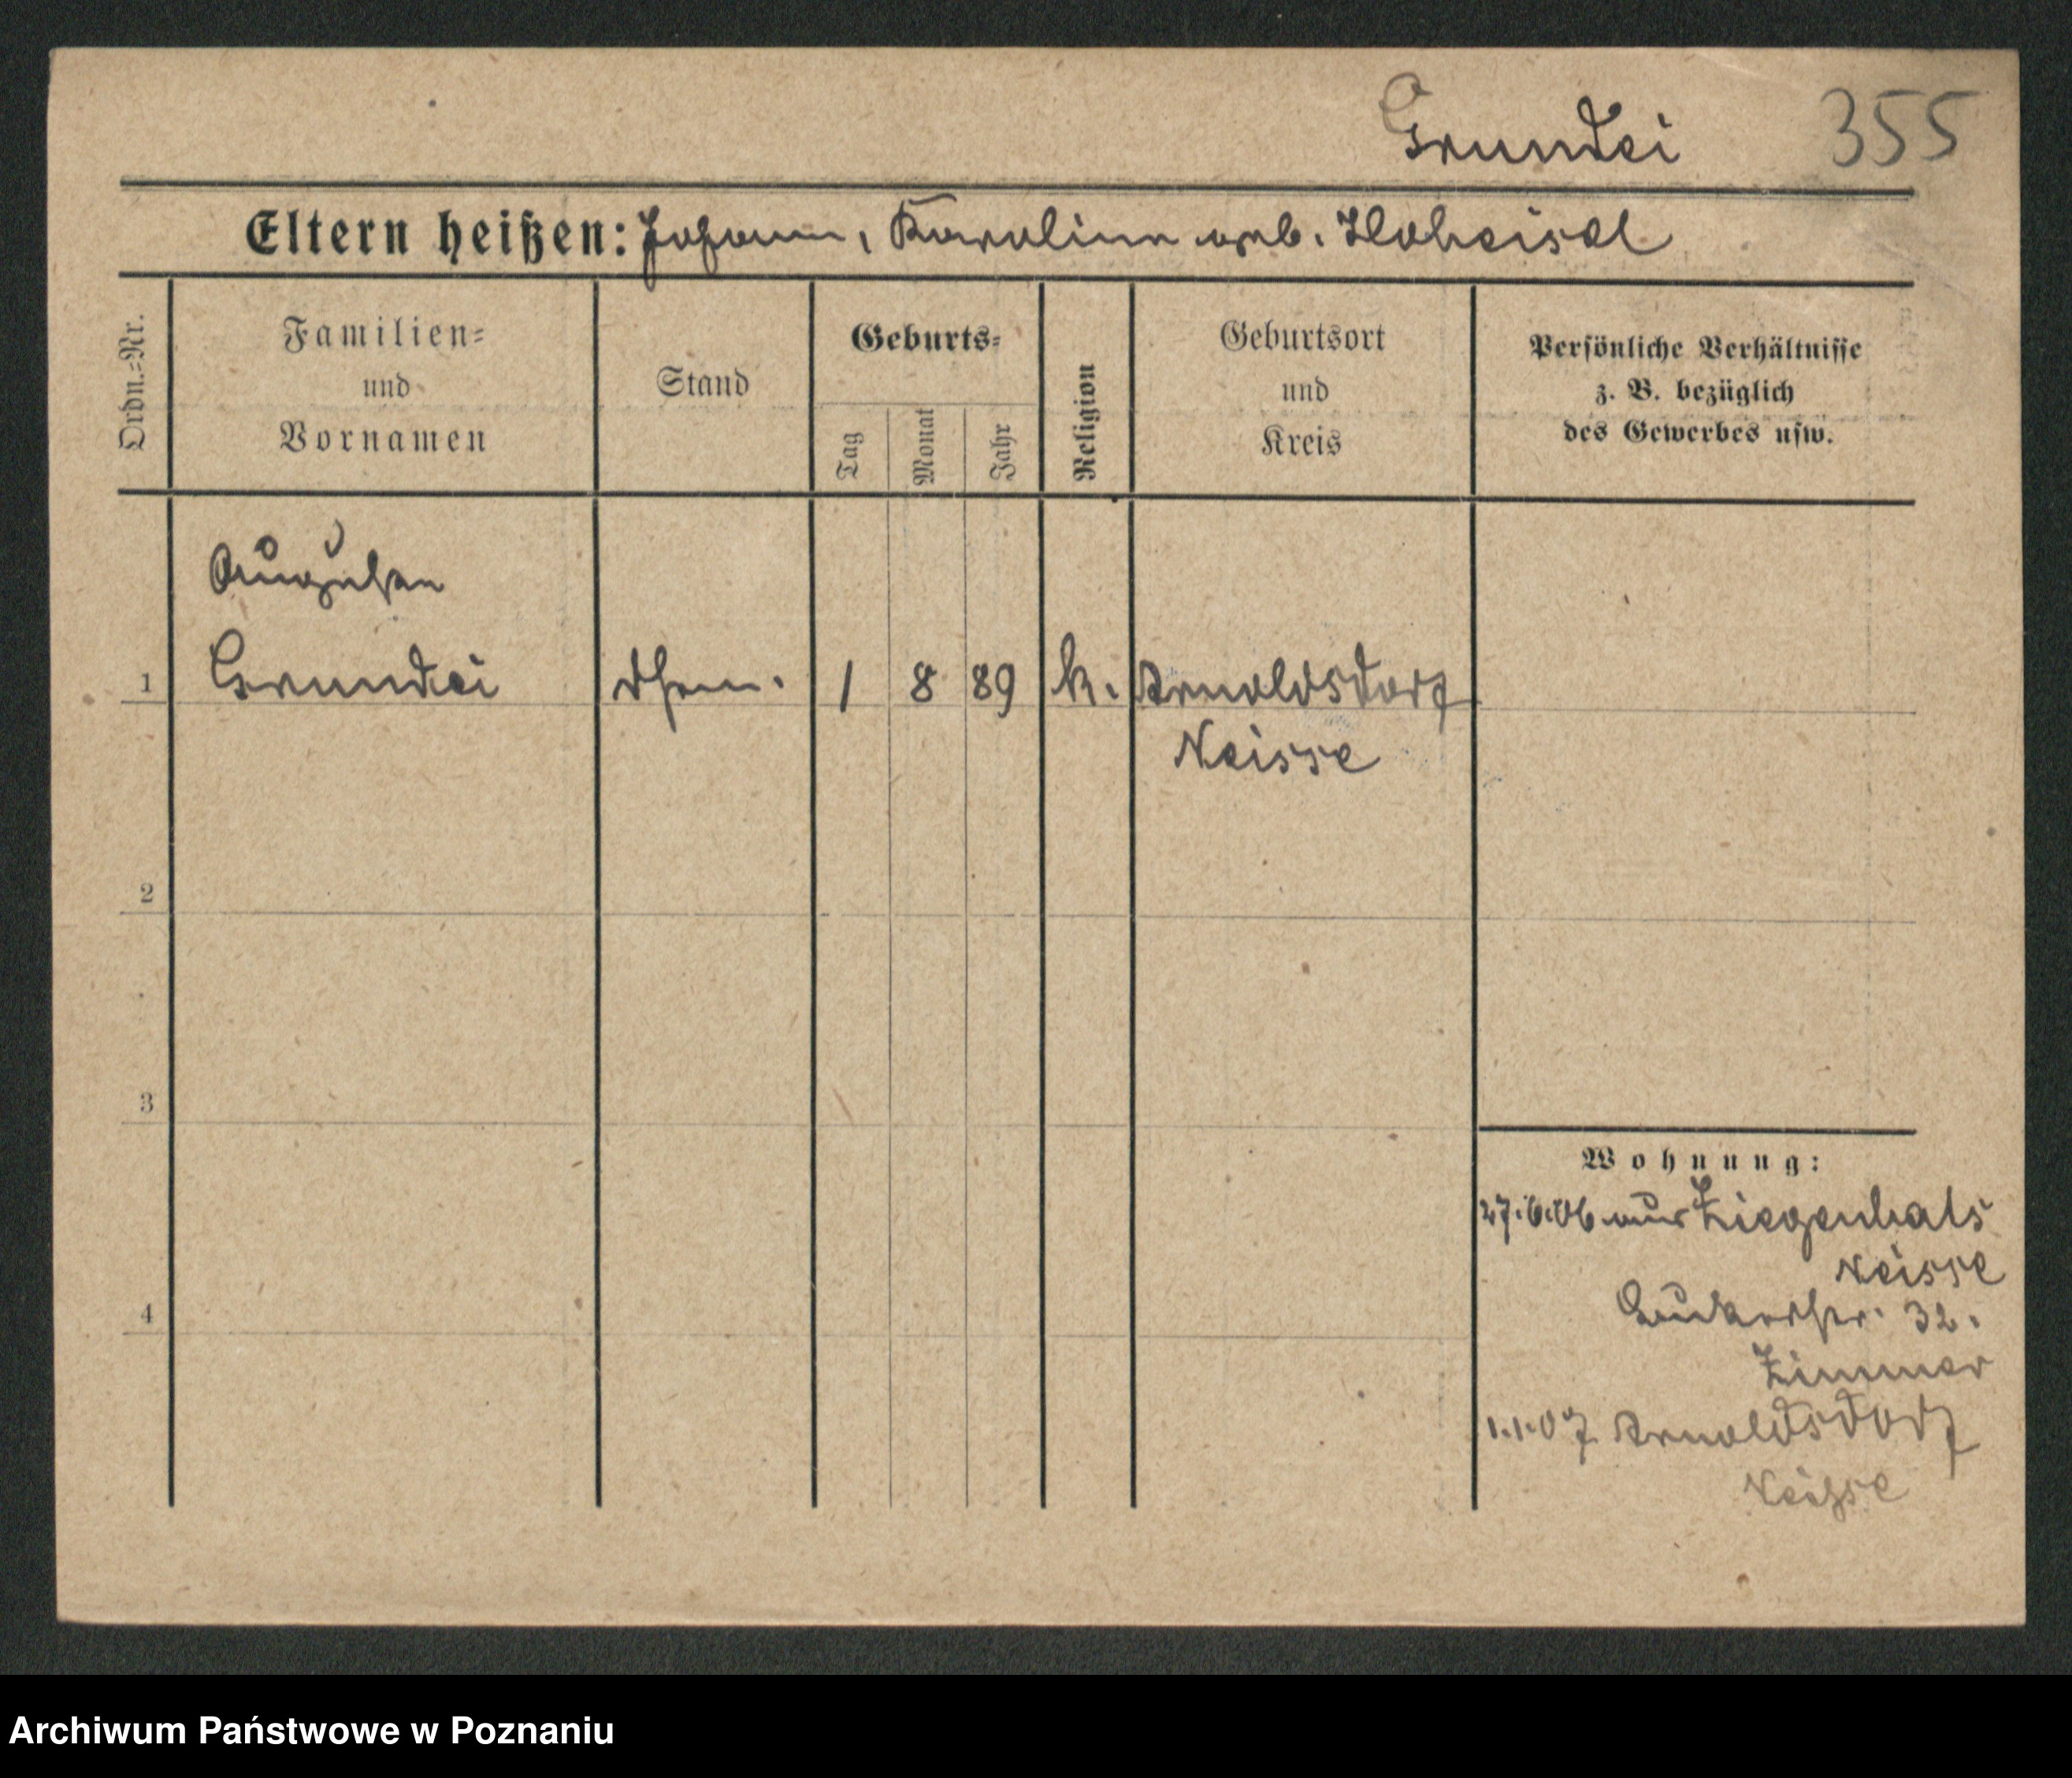 Grundei 355
Eltern heißen: Johann, Karolina geb. Hoheisel
Ordn.-Nr.
Familien-
und
Vornamen
Stand
Geburts-
Tag
Monat
Jahr
Religion
Geburtsort
und
Kreis
Persönliche Verhältnisse
z. B. bezüglich
des Gewerbes usw.
1 Grundei 1 8 89 k. Arnoldsdorf
Neisse
2
3
4
Wohnung:
27.6.06 aus Ziegenhals
Neisse
32.
Zimmer
1.1.07 Arnoldsdorf
Neisse
Archiwum Państwowe w Poznaniu